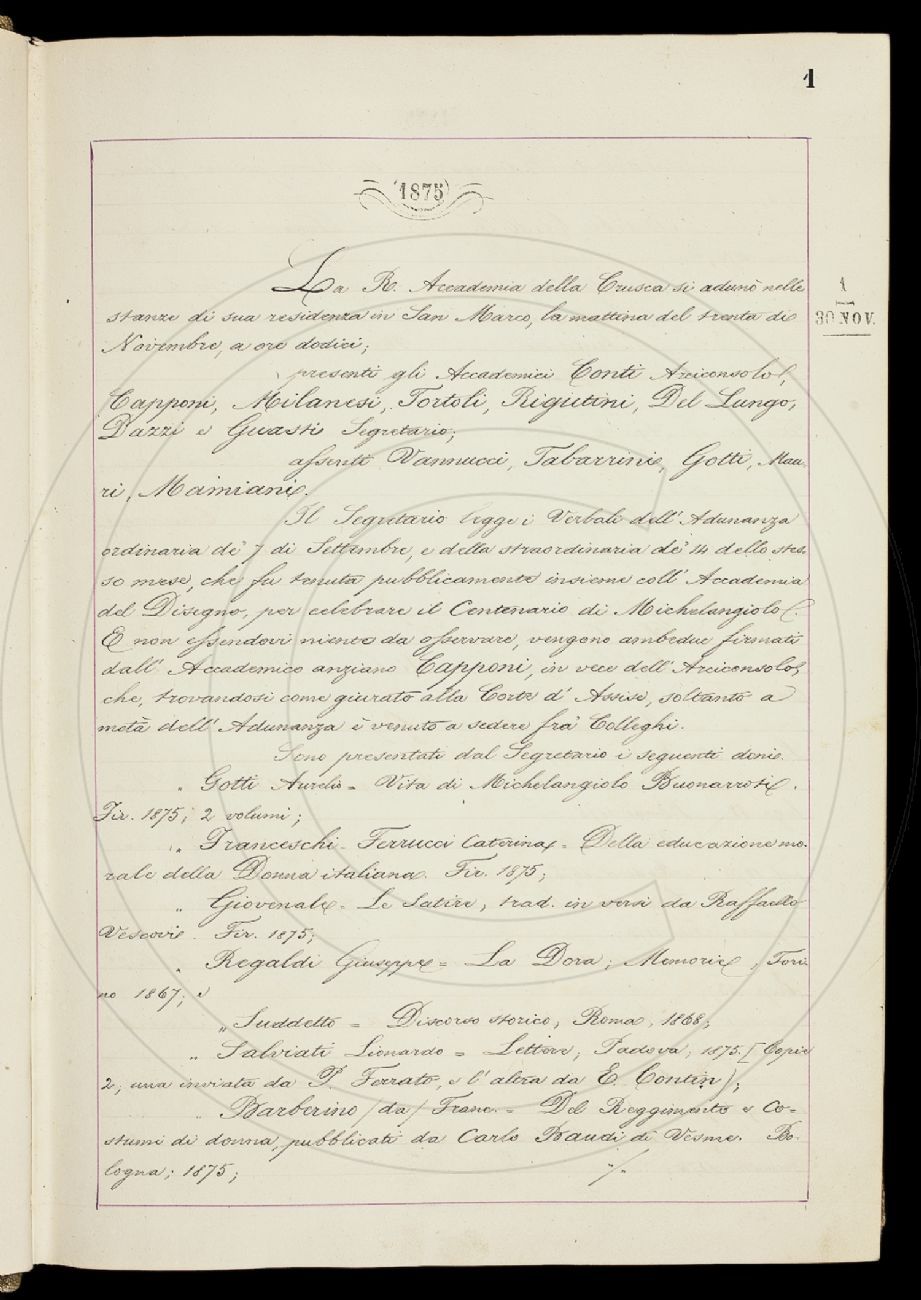 1
1875
La R. Accademia della Crusca si adunò nelle
1
30 NOV.
stanze di sua residenza in San Marco, la mattina del trenta di
Novembre, a ore dodici;
presenti gli Accademici Conti Arciconsolo,
Capponi, Milanesi, Tortoli, Rigutini, Del Lungo,
Dazzi e Guasti Segretario;
assenti Vannucci, Tabarrini, Gotti, Mau-
ri, Mamiani.
Il Segretario legge i Verbali dell'Adunanza
ordinaria de' 7 di Settembre, e della straordinaria de' 14 dello stes-
so mese, che fu tenuta pubblicamente insieme coll'Accademia
del Disegno, per celebrare il Centenario di Michelangiolo.
E non essendovi niente da osservare, vengono ambedue firmati
dall'Accademico anziano Capponi, in vece dell'Arciconsolo,
che, trovandosi come giurato alla Corte d'Assise, soltanto a
metà dell'Adunanza è venuto a sedere fra' Colleghi.
Sono presentati dal Segretario i seguenti doni.
„ Gotti Aurelio = Vita di Michelangiolo Buonarroti.
Fir. 1875; 2 volumi;
„ Franceschi-Ferrucci Caterina = Della educazione mo-
rale della Donna italiana. Fir. 1875;
„ Giovenale = Le Satire, trad. in versi da Raffaello
Vescovi. Fir. 1875;
„ Regaldi Giuseppe = La Dora; Memorie, Tori-
no 1867; e
„ Suddetto = Discorso storico, Roma, 1868;
„ Salviati Lionardo = Lettere; Padova, 1875. [Copie
2, una inviata da P. Ferrato, e l'altra da E. Contin);
„ Barberino (da) Franc. = Del Reggimento e Co-
stumi di donna, pubblicati da Carlo Baudi di Vesme. Bo-
logna; 1875;
·/·